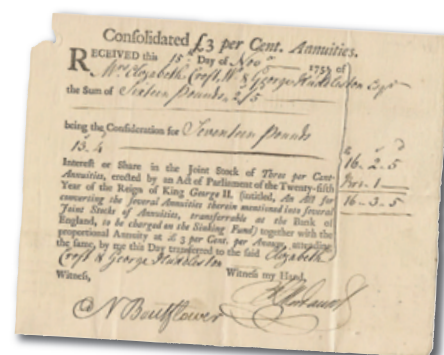 Consolidated £3 per Cent. Annuities.
RECEIVED this 15th Day of Novr 1753 of
Mrs Elizabeth Croft, W. & George Huddleston Esqr
the Sum of Sixteen Pounds 2/5
being the Consideration for Seventeen Pounds
15. 4
Interest or Share in the Joint Stock of Three per Cent.
Annuities, erected by an Act of Parliament of the Twenty-fifth
Year of the Reign of King George II. (intitled, An Act for
converting the several Annuities therein mentioned into several
Joint Stocks of Annuities, transferrable at the Bank of
England, to be charged on the Sinking Fund) together with the
proportional Annuity at £ 3 per Cent. per Annum, attending
the same, by me this Day transferred to the said Elizabeth
Croft & George Huddleston
Witness my Hand,
Witness,
N Bouflower
16 - 2 - 5
1 -
16 - 3 - 5